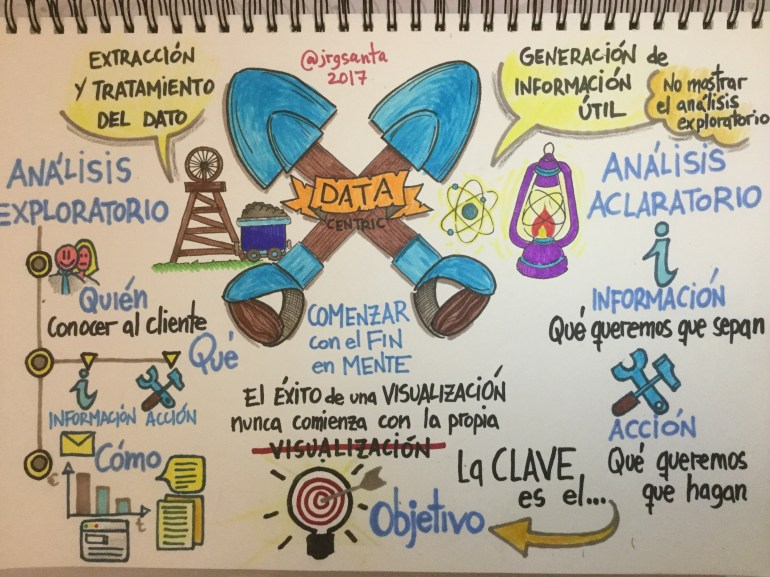 EXTRACCIÓN
Y TRATAMIENTO
DEL DATO
@jrgsanta
2017
GENERACIÓN de
INFORMACIÓN
ÚTIL
No mostrar
el análisis
exploratorio
ANÁLISIS
EXPLORATORIO
DATA
CENTRIC
ANÁLISIS
ACLARATORIO
Quién
Conocer al cliente
Qué
INFORMACIÓN
ACCIÓN
Cómo
€
t
COMENZAR
con el FIN
en MENTE
El ÉXITO de una VISUALIZACIÓN
nunca comienza con la propia
VISUALIZACIÓN
La CLAVE
es el...
Objetivo
i
INFORMACIÓN
Qué queremos que sepan
ACCIÓN
Qué queremos
que hagan